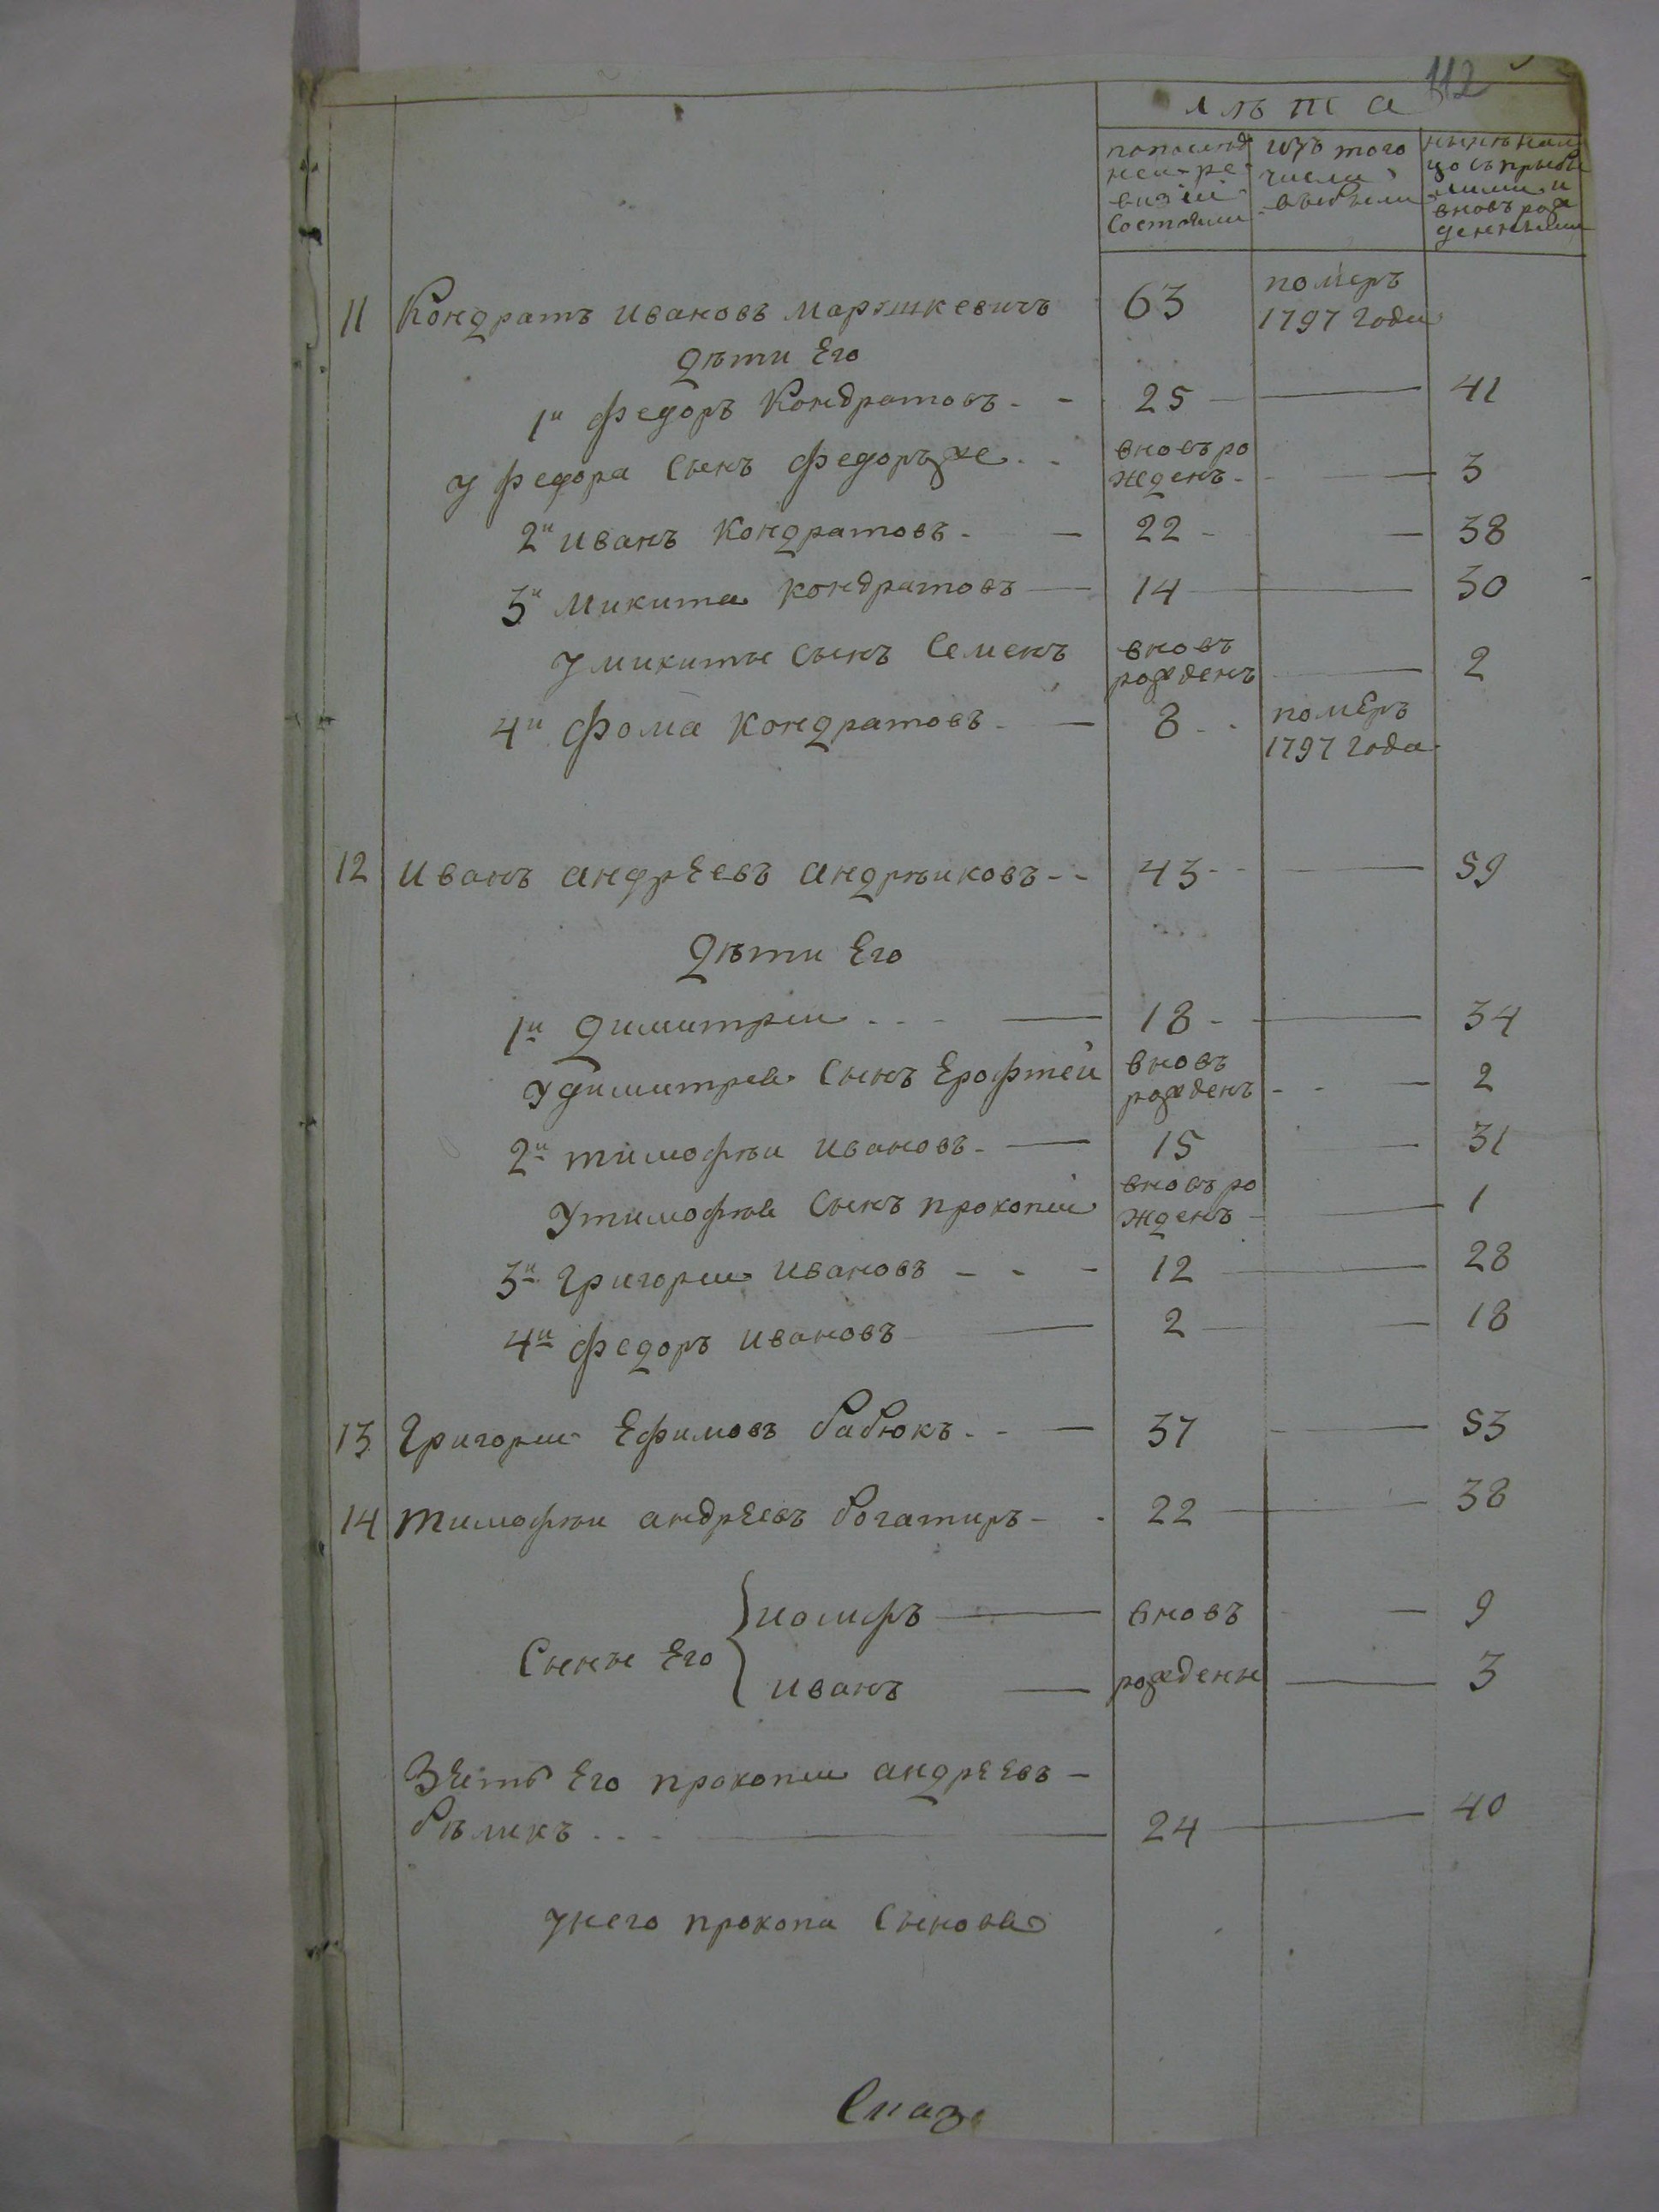 112
лѣта
попослед
неи ре
визіи
состояли
изъ того
числа
выбыли
нынѣ нали
цо съ прыбы
лыми и
вновь рож
денными
11 Кондратъ Ивановъ Марушкевичъ 63 померъ
1797 года
дѣти Его
1й федоръ Кондратовъ - - 25 — 41
у федора Сынъ федоръ же - - вновь ро
жденъ - — 3
2й Иванъ Кондратовъ - — 22 - — 38
3й Микита Кондратовъ — 14 — 30
у микиты Сынъ Семенъ вновь
рожденъ — 2
4й фома Кондратовъ - — 8 - - померъ
1797 года
12 Иванъ андрЕевъ андрѣиковъ - - 43 - - — 59
дѣти Его
1й димитрии - - - — 18 - — 34
у димитрея Сынъ Ерофтеи вновь
рожденъ - - — 2
2й тимофѣи Ивановъ - — 15 — 31
у тимофѣя Сынъ прокопии вновь ро
жденъ - — 1
3й Григории Ивановъ - - - 12 — 28
4й федоръ Ивановъ — 2 — 18
13 Григории Ефимовъ бабюкъ - - — 37 - — 53
14 тимофѣи андрЕевъ богатиръ - - 22 — 38
иосифъ — вновь — 9
Сыны Его
иванъ — рождены — 3
Зеть Его прокопии андрЕЕвъ -
бѣликъ - - - — 24 — 40
у него прокопа Сыновя
Сказ